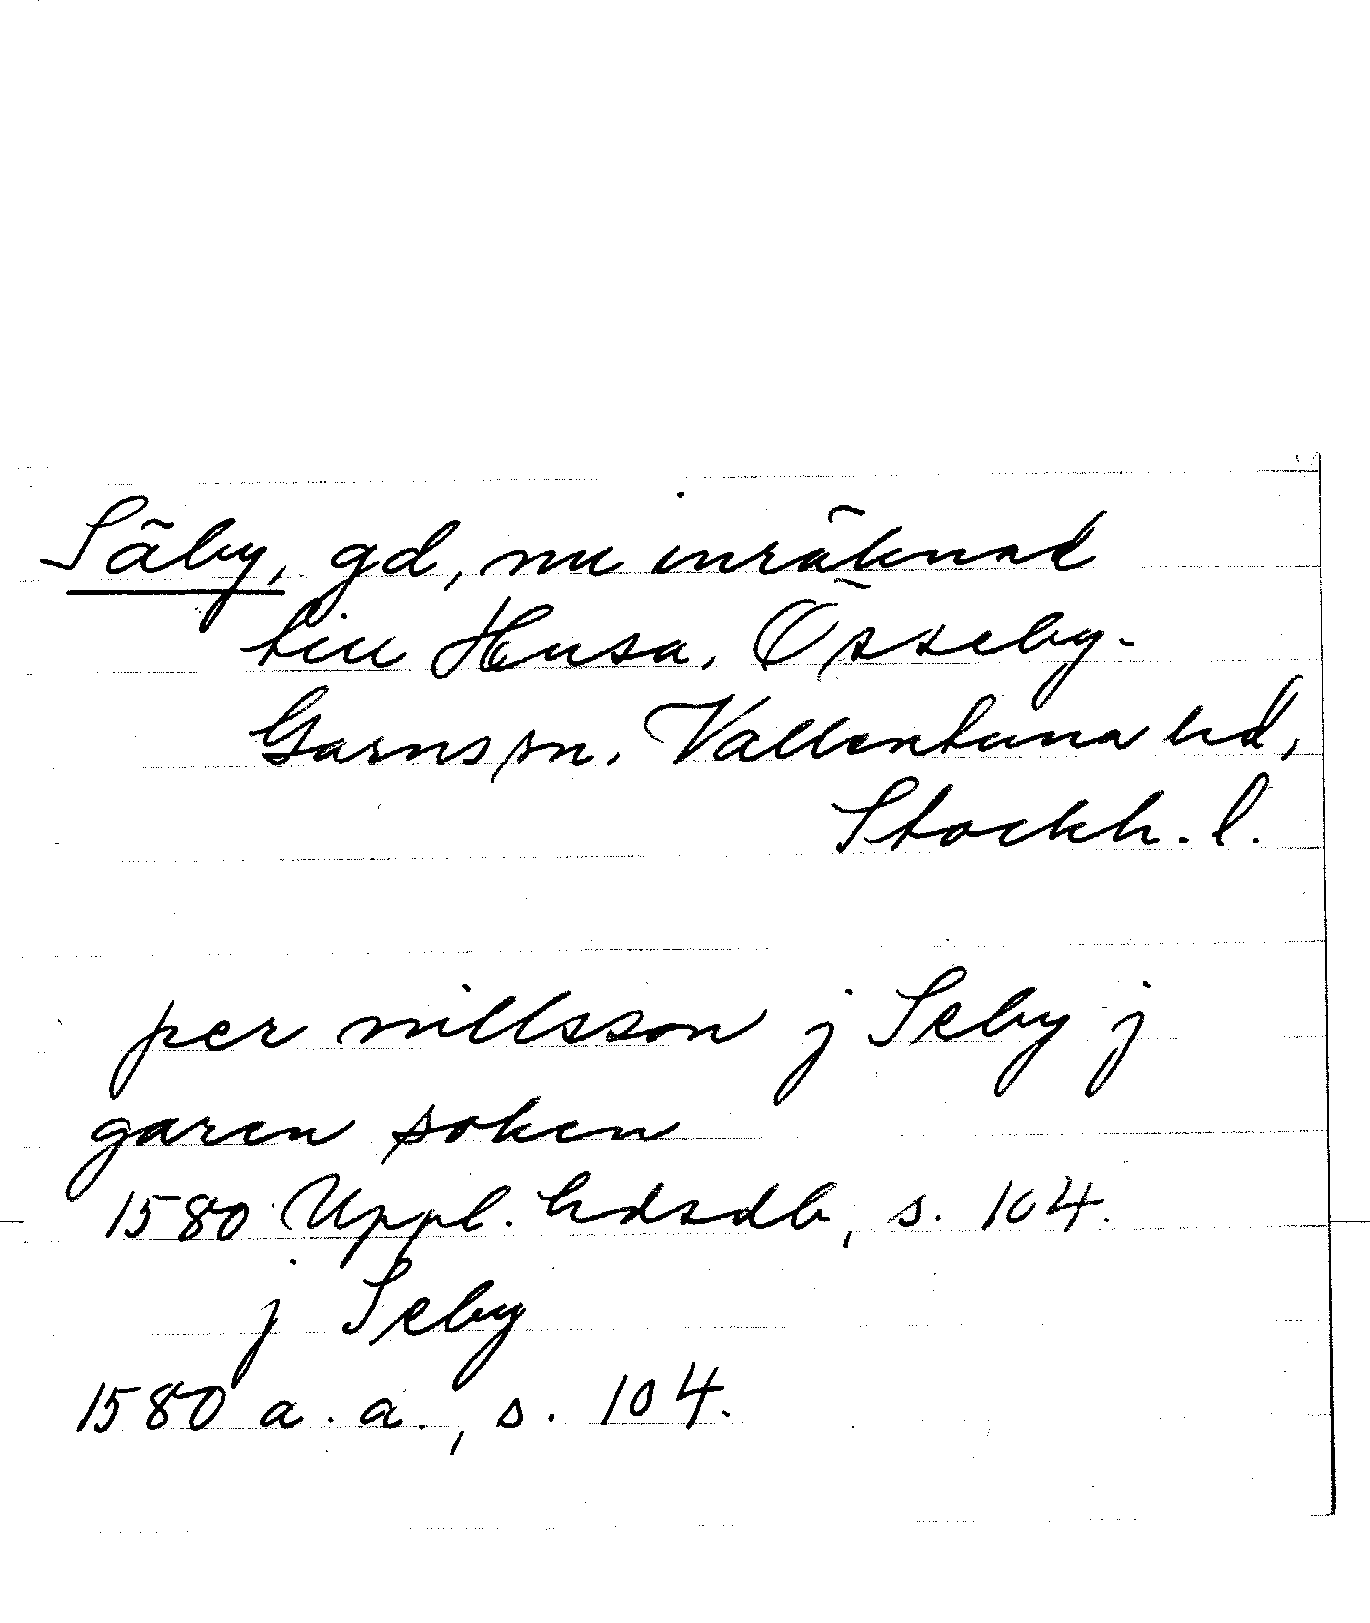 Säby, gd, nu inräknad
till Husa, Össeby-
Garns sn, Vallentuna hd,
Stockh. l.
per nillsson j Seby j
garen soken
1580 Uppl. hdsdb, s. 104.
j Seby
1580 a. a., s. 104.